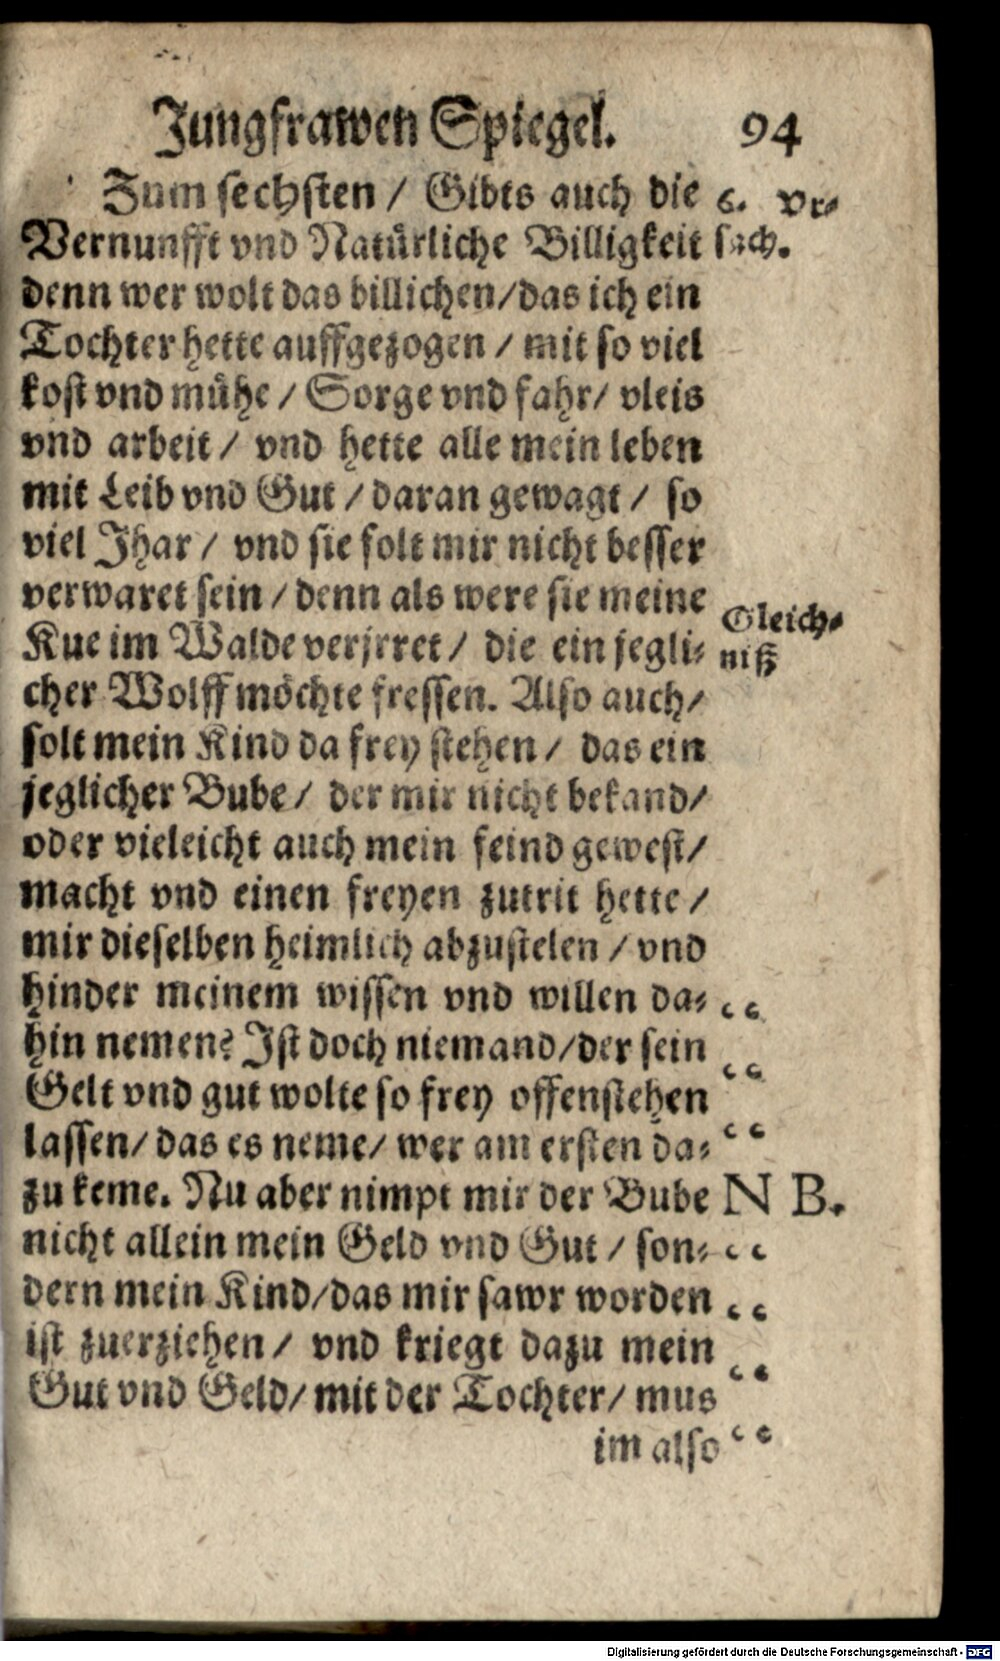 Jungfrawen Spiegel. 94
Zum sechsten / Gibts auch die
6. Vr-
Vernunfft vnd Natürliche Billigkeit
sach.
denn wer wolt das billichen/das ich ein
Tochter hette auffgezogen / mit so viel
kost vnd mühe / Sorge vnd fahr/ vleis
vnd arbeit / vnd hette alle mein leben
mit Leib vnd Gut / daran gewagt / so
viel Jhar / vnd sie solt mir nicht besser
verwaret sein / denn als were sie meine
Gleich-
Kue im Walde verjrret / die ein jegli-
niß
cher Wolff möchte fressen. Also auch/
solt mein Kind da frey stehen / das ein
jeglicher Bube / der mir nicht bekand/
oder vieleicht auch mein feind gewest/
macht vnd einen freyen zutrit hette /
mir dieselben heimlich abzustelen / vnd
hinder meinem wissen vnd willen da-
hin nemen? Ist doch niemand/der sein
Gelt vnd gut wolte so frey offenstehen
lassen/ das es neme/ wer am ersten da-
zu keme. Nu aber nimpt mir der Bube
N B.
nicht allein mein Geld vnd Gut / son-
dern mein Kind/das mir sawr worden
ist zuerziehen / vnd kriegt dazu mein
Gut vnd Geld/ mit der Tochter/ mus
im also
Digitalisierung gefördert durch die Deutsche Forschungsgemeinschaft - DFG